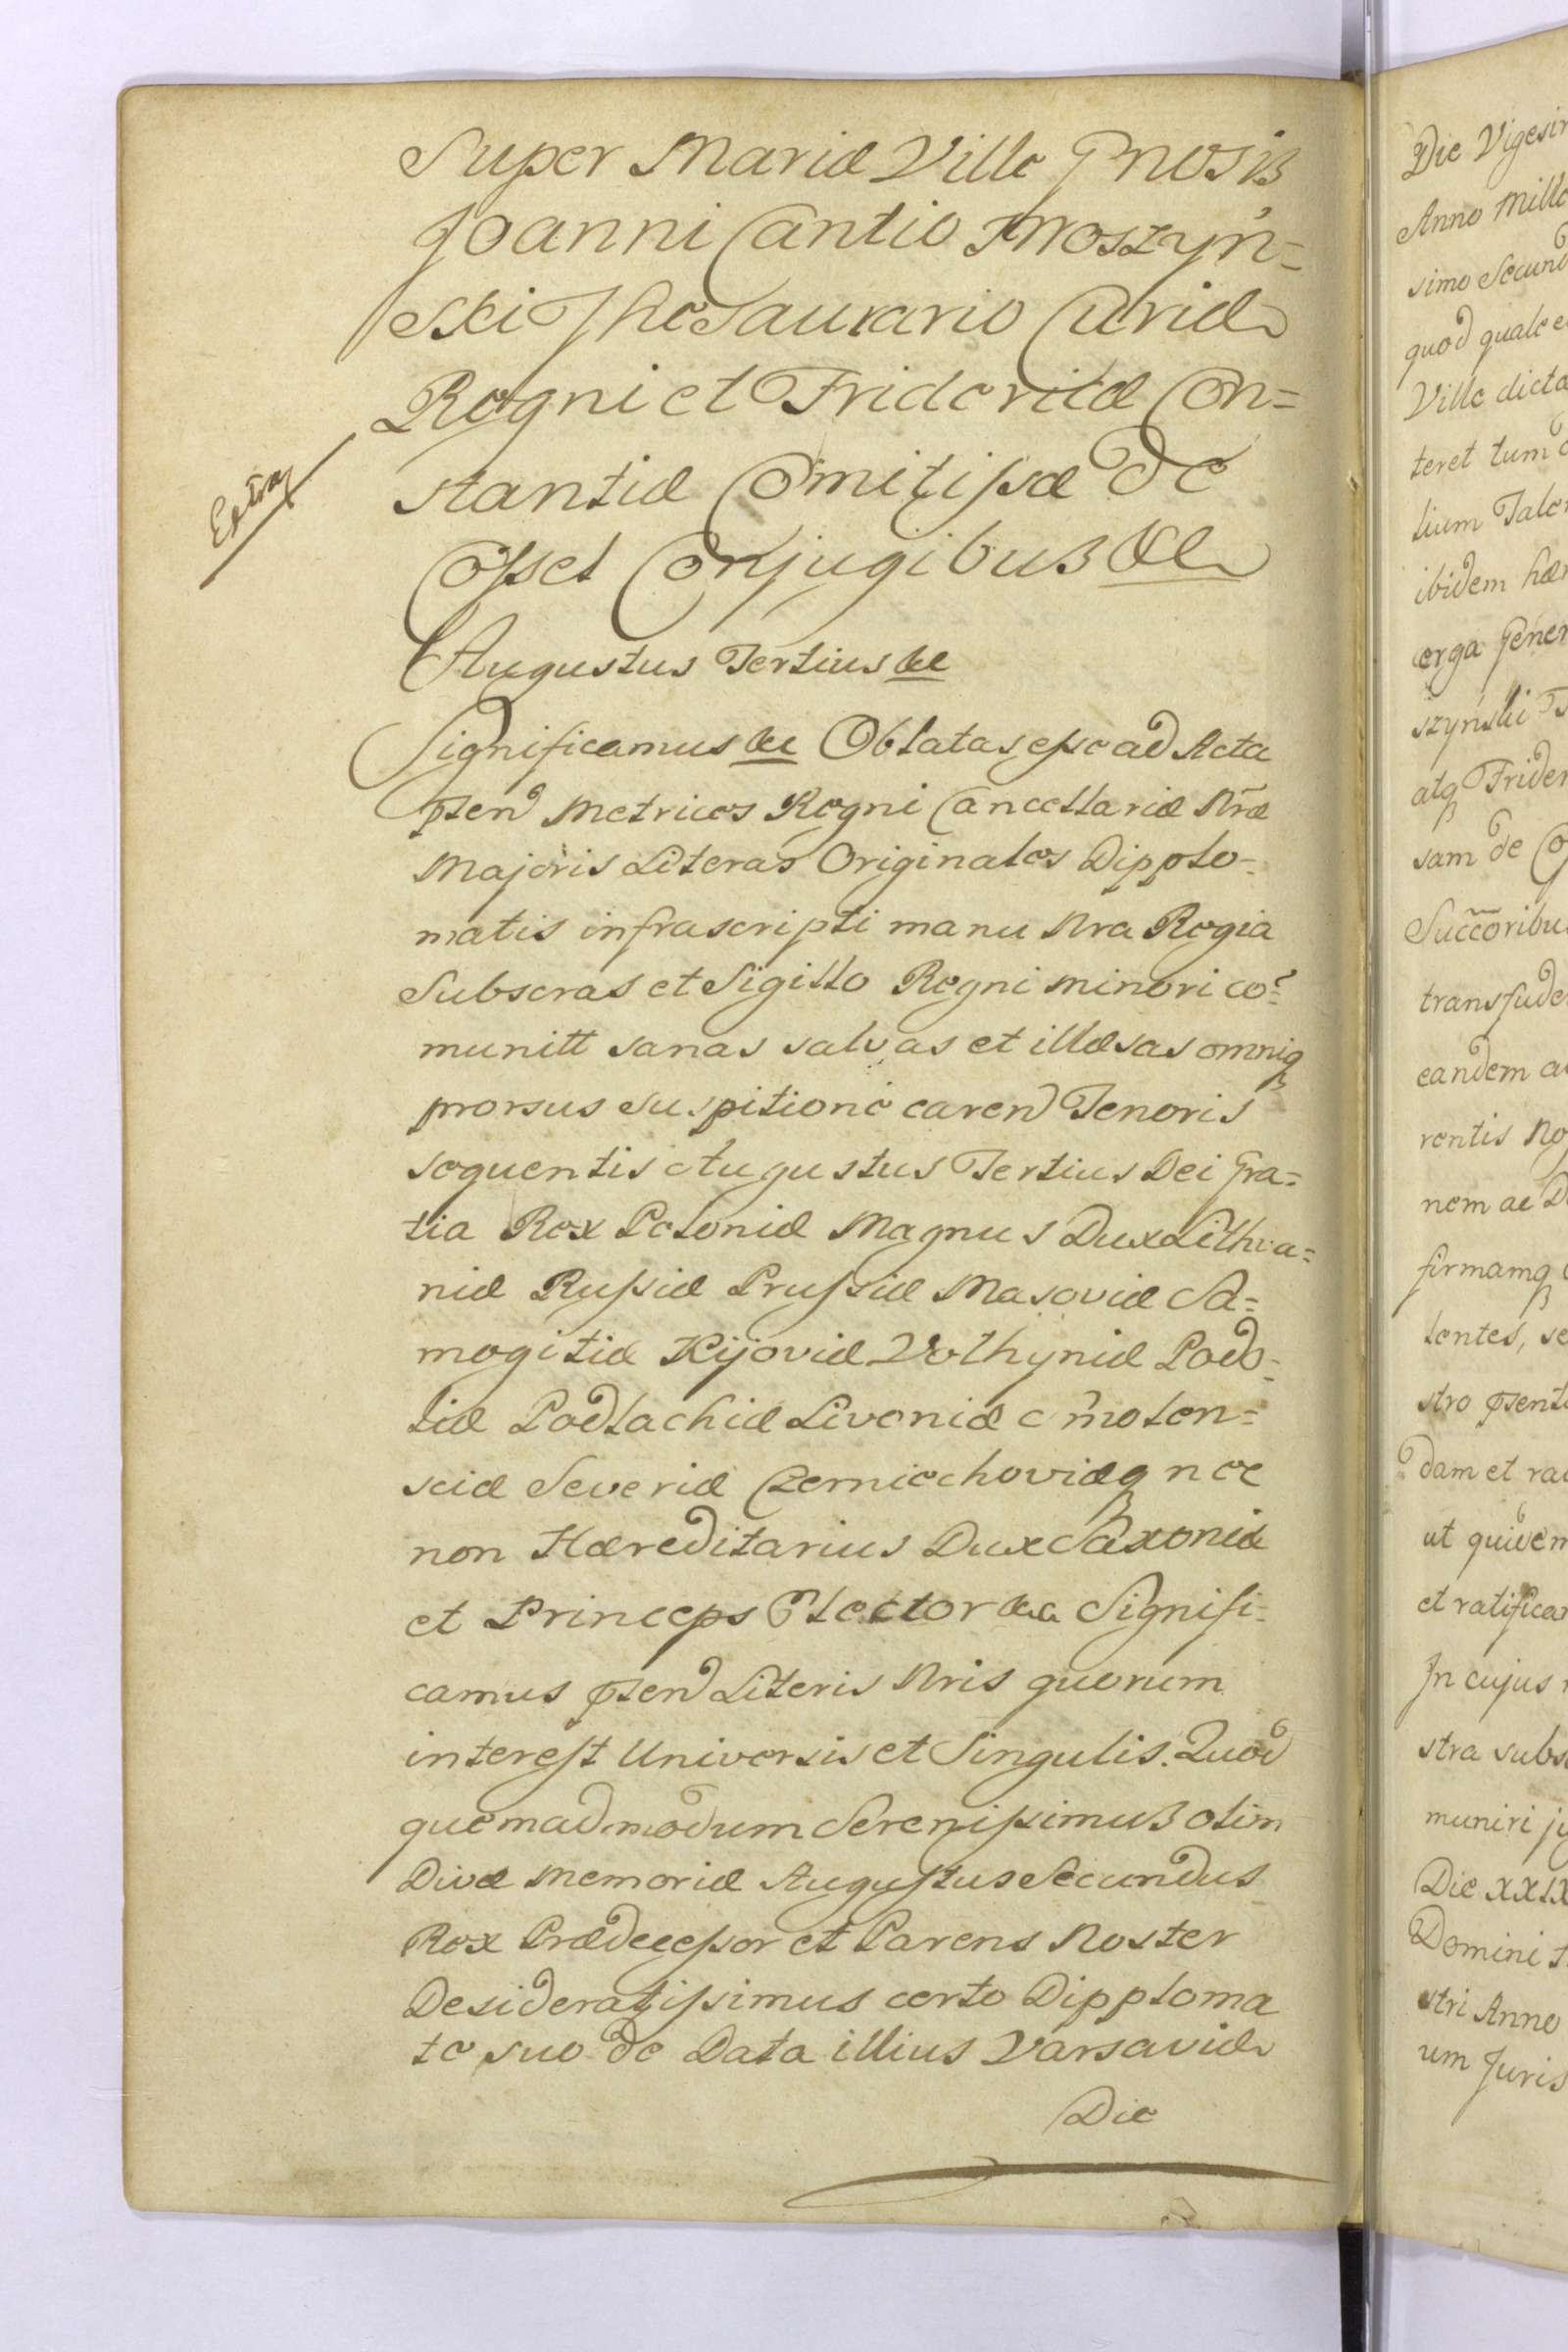 Super Mariæ Ville Gnosis
Joanni Cantio Moszyń=
ski Thesaurario Curiæ
Regni et Fridericæ Con=
stantiæ Comitissæ de
Cosset Conjugibus &c
Extra
Augustus Tertius &c
Significamus &c Oblatas esse ad Acta
pñen Metrices Regni Cancellariæ Nræ
Majoris Literas Originales Dipplo-
matis infrascripti manu Nra Regia
Subscras et Sigillo Regni minori co=
munitt sanas salvas et illæsas omniq
prorsus suspitione caren Tenoris
sequentis Augustus Tertius Dei Gra=
tia Rex Poloniæ Magnus Dux Lithva=
niæ Russiæ Prussiæ Masoviæ Sa=
mogitiæ Kijoviæ Volhyniæ Podo-
liæ Podlachiæ Livoniæ Smolen=
sciæ Severiæ Czerniechoviæq nec
non Hæreditarius Dux Saxoniæ
et Princeps Elector &c Signifi=
camus pñen Literis Nris quorum
interest Universis et Singulis. Quod
quemadmodum Serenissimus olim
Divæ Memoriæ Augustus Secundus
Rex Prædecessor et Parens Noster
Desideratissimus certo Dipploma
te suo de Data illius Varsaviæ
Die
Die Vigesim
Anno Mille
simo Secund
quod quale
Ville dicta
teret tum
lium Tale
ibidem hær
erga Gener
szynski T
atq Frider
sam de Co
Succoribu
transfude
eandem a
rentis No
nem ac D
firmamq
lentes, se
stro pñent
dam et ra
ut quidem
et ratifica
In cujus
stra subs
muniri ju
Die XXIX
Domini
stri Anno
um Juris